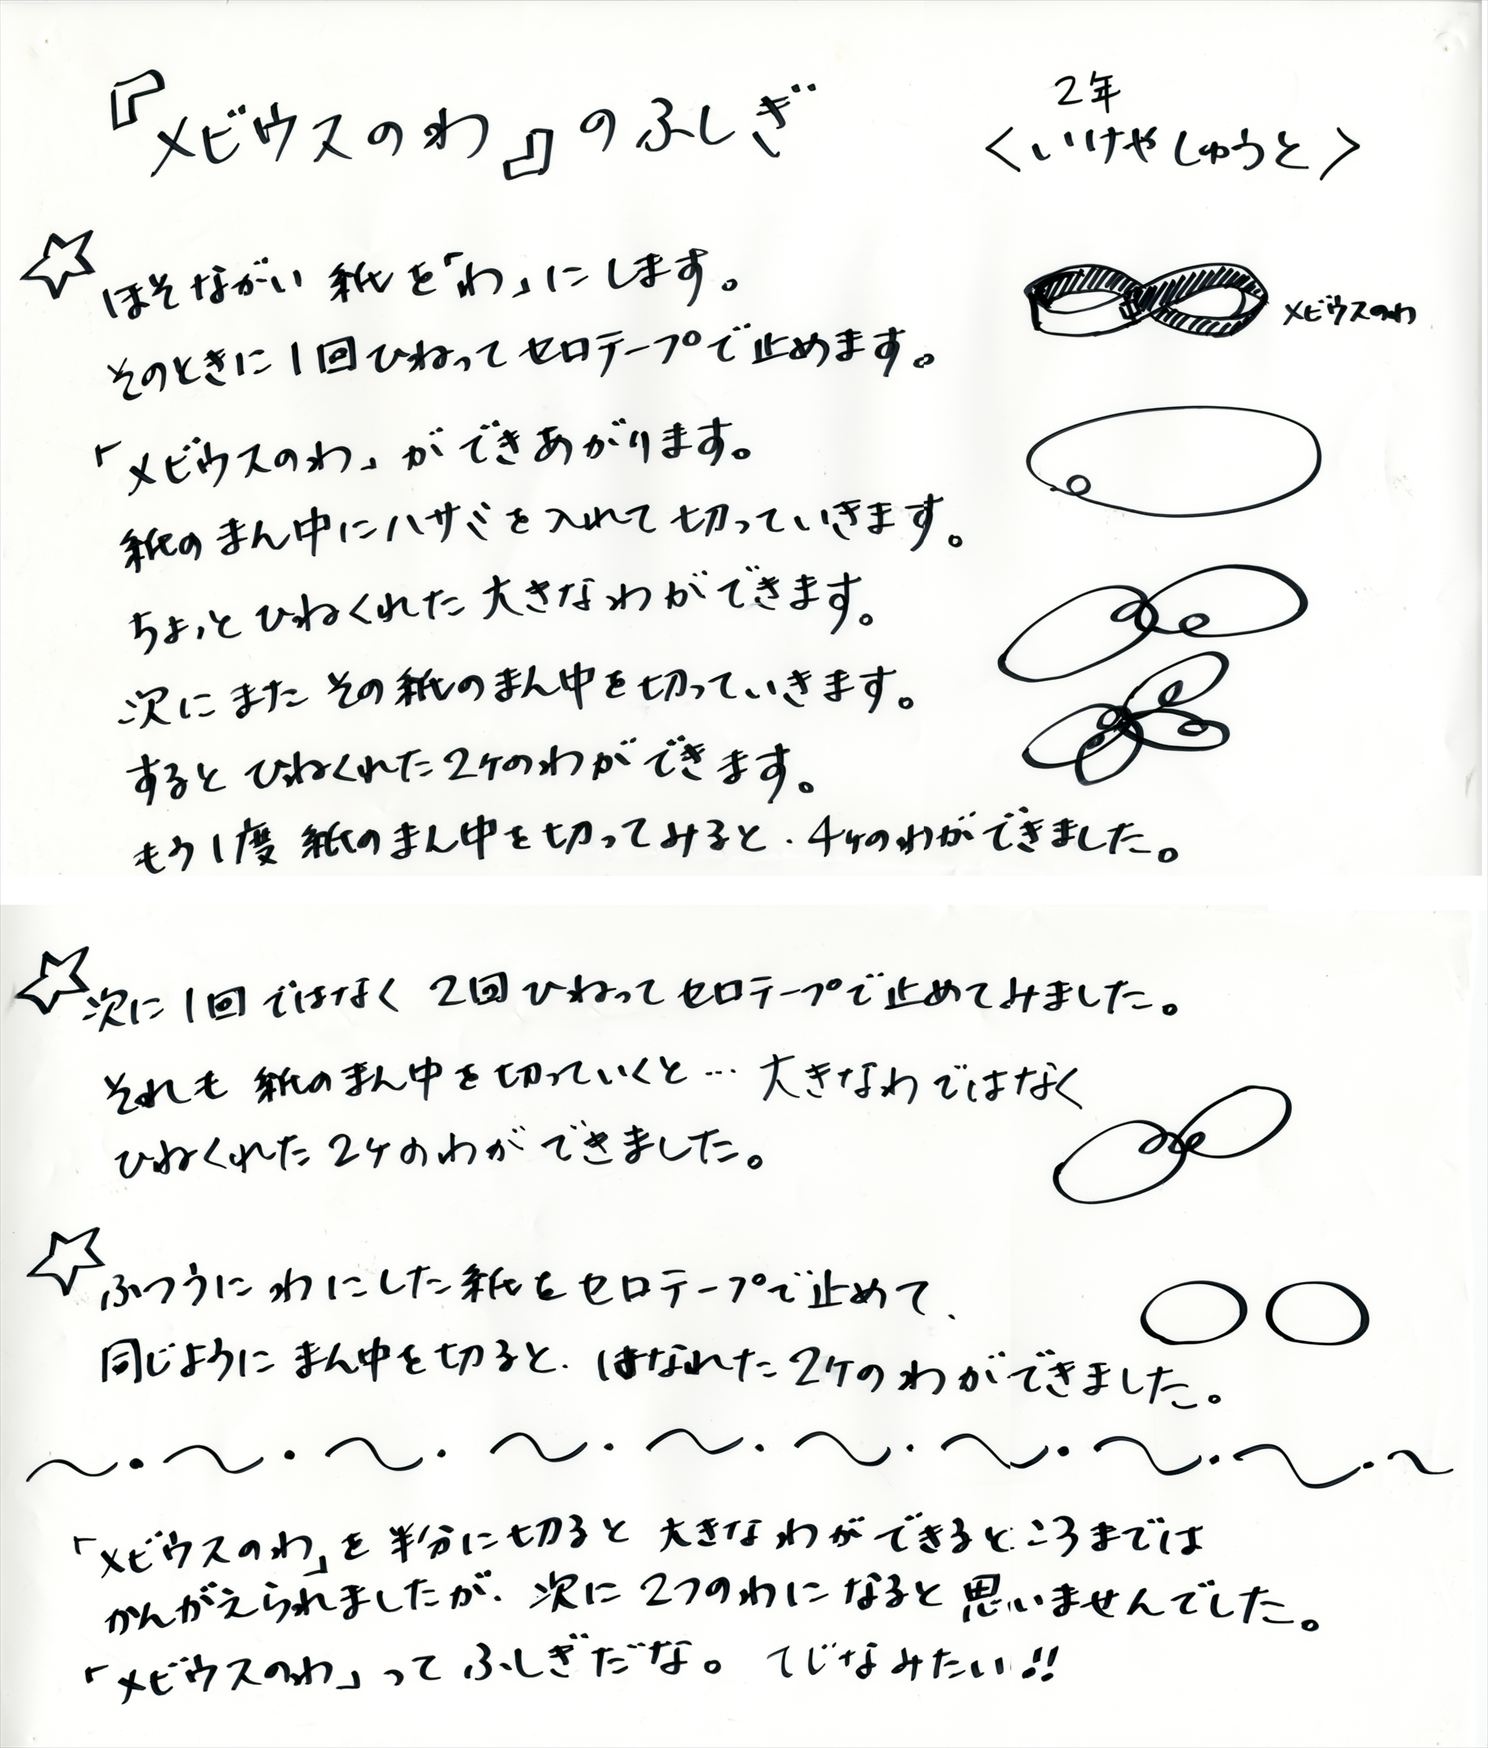 『メビウスのわ』のふしぎ
2年
<いけやしゅうと>
☆ほそながい紙を「わ」にします。
そのときに1回ひねってセロテープで止めます。
メビウスのわ
「メビウスのわ」ができあがります。
紙のまん中にハサミを入れて切っていきます。
ちょっとひねくれた大きなわができます。
次にまたその紙のまん中を切っていきます。
するとひねくれた2ケのわができます。
もう1度紙のまん中を切ってみると、4ケのわができました。
☆次に1回ではなく2回ひねってセロテープで止めてみました。
それも紙のまん中を切っていくと…大きなわではなく
ひねくれた2ケのわができました。
☆ふつうにわにした紙をセロテープで止めて、
同じようにまん中を切ると、はなれた2ケのわができました。
〜・〜・〜・〜・〜・〜・〜・〜・〜・〜
「メビウスのわ」を半分に切ると大きなわができるところまでは
かんがえられましたが、次に2つのわになると思いませんでした。
「メビウスのわ」ってふしぎだな。てじなみたい!!